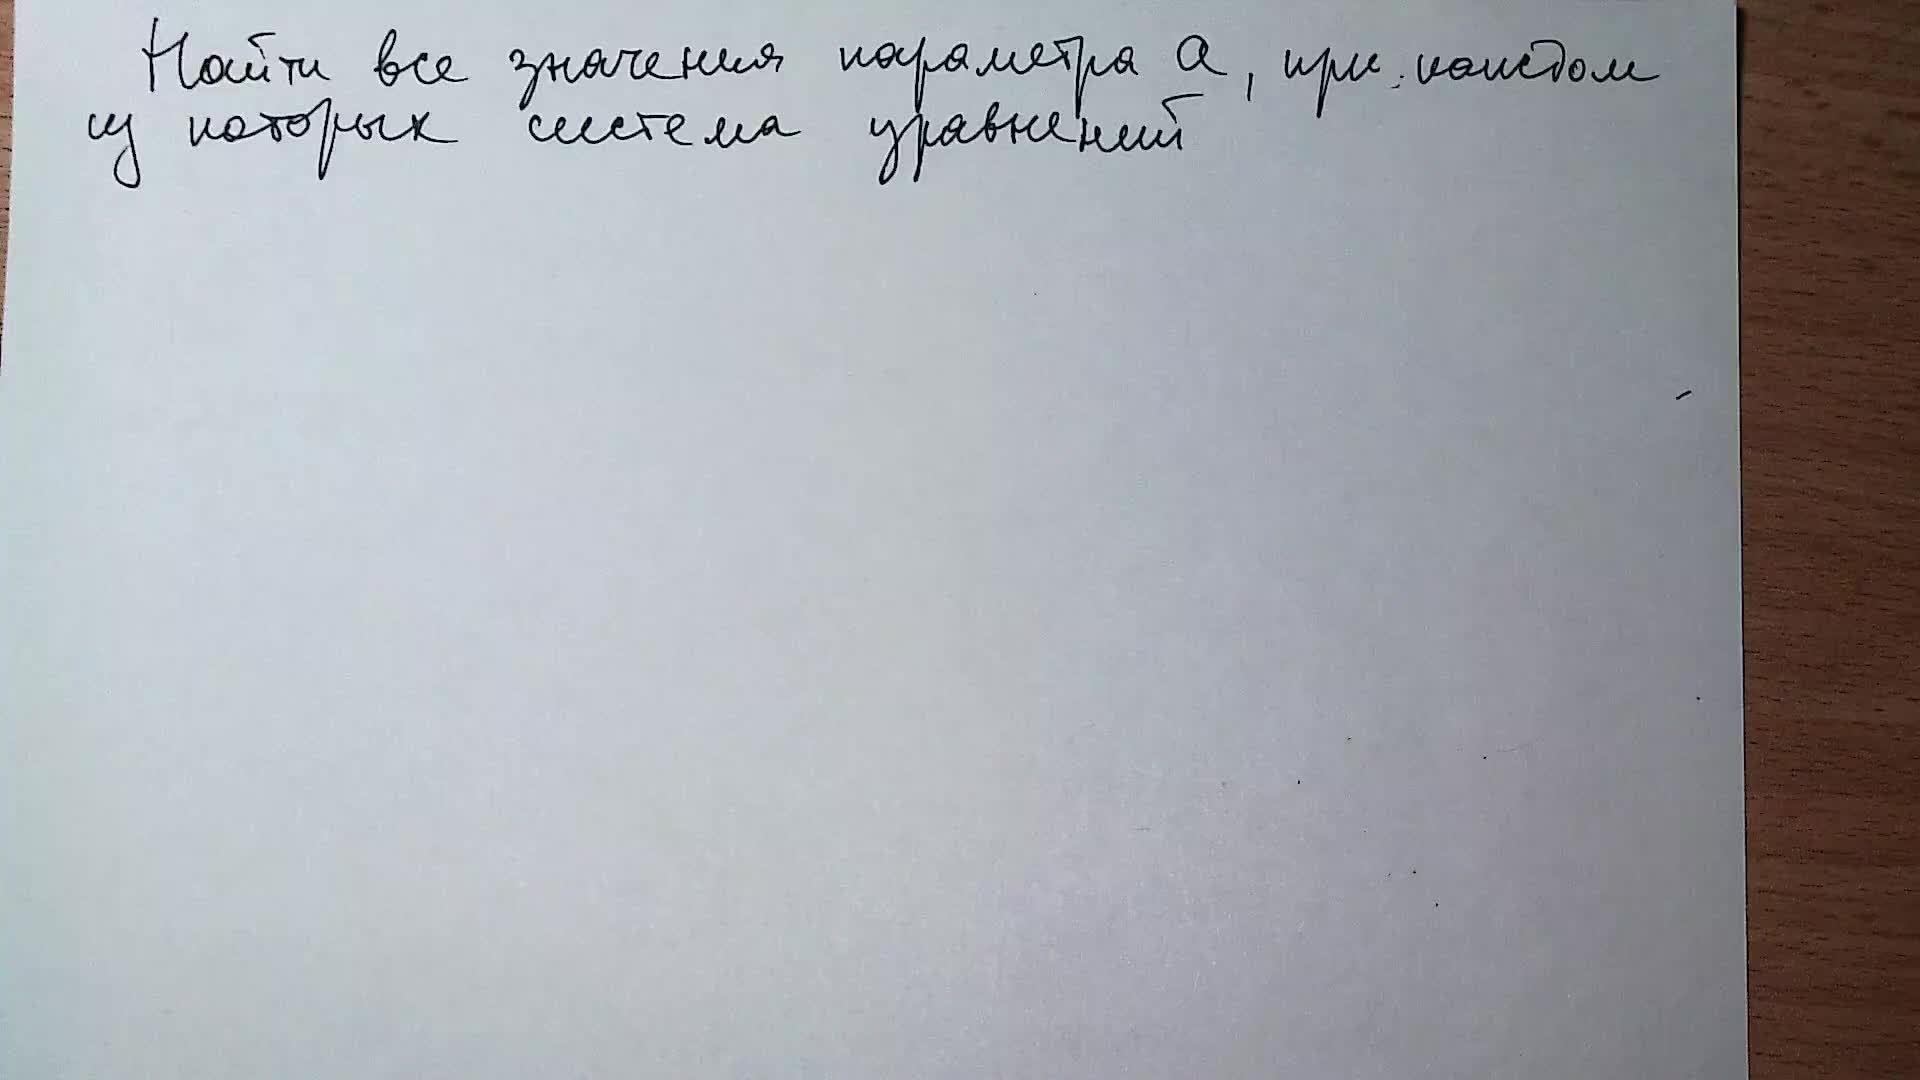 Найти все значения параметра a, при каждом
из которых система уравнений